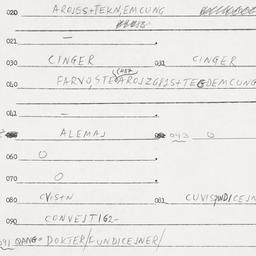 020 AROJSS+TEKN,EMCUNG
021 —
030 CINGER 031 CINGER
040 FARVO,STE(AROJZGPJS+TEGDEMCUNG
041 —
ALEMAJ 043 O
060 O
070 O
080 CVIS+N 081 CUVISUNDICEJN
090 CONVEJTIG2-
091 QANG+DOKTER/FUNDICEJNER/